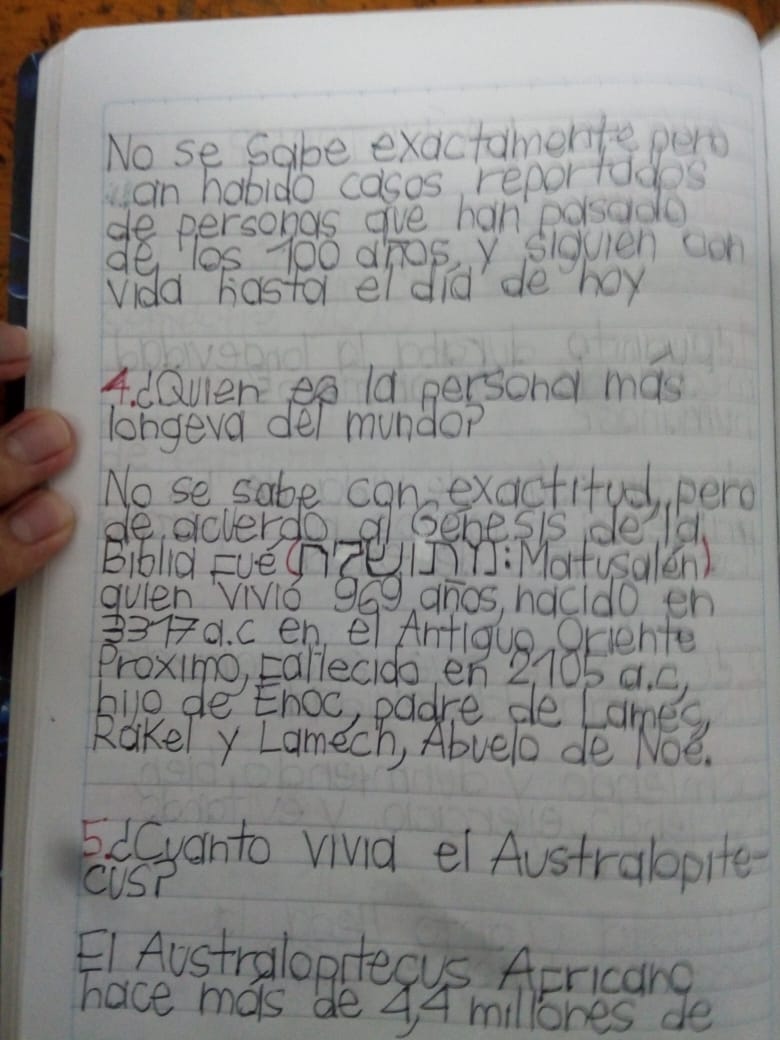 No se sabe exactamente pero
an habido casos reportados
de personas que han pasado
de los 100 años, y siguien con
vida hasta el día de hoy
4.¿Quien es la persona más
longeva del mundo?
No se sabe con exactitud, pero
de acuerdo al Génesis de la
Biblia Fué (מתושלח: Matusalén)
quien vivió 969 años, nacido en
3317 a.c en el Antiguo Oriente
Proximo, Fallecido en 2,105 a.c,
hijo de Enoc, padre de Lamec,
Rakel y Lamech, Abuelo de Noé.
5.¿Cuanto vivia el Australopite-
cus?
El Australopitecus Africano
hace más de 4,4 millones de